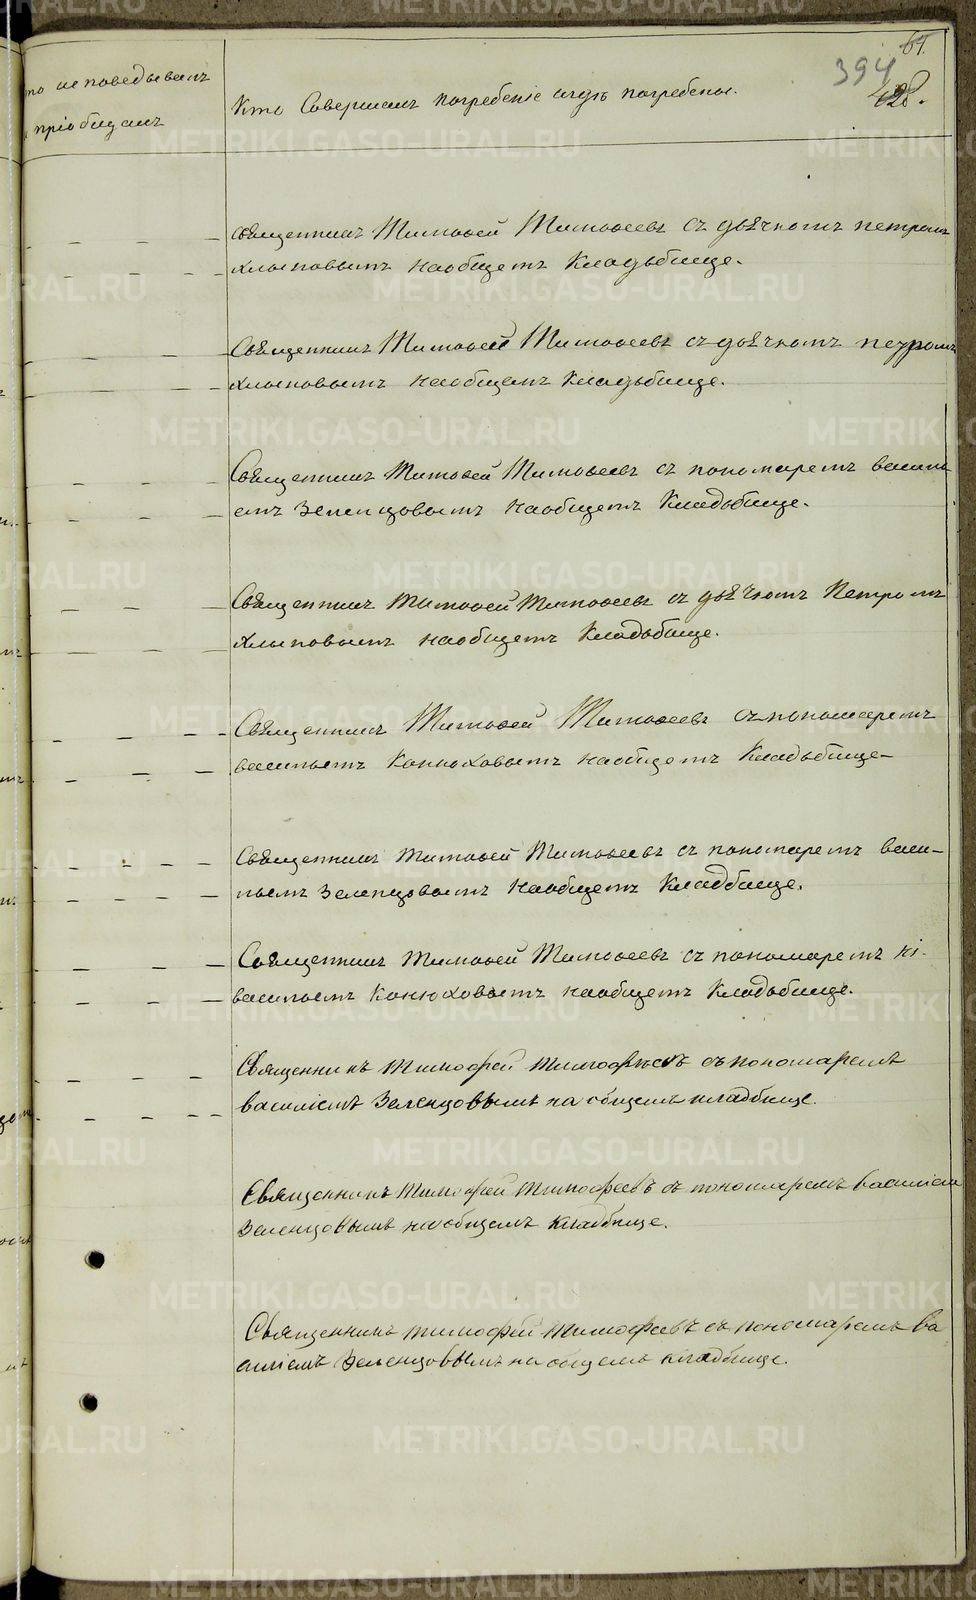 65.
394
428.
то исповедывалъ
и пріобщалъ
Кто Совершалъ погребеніе игдѣ погребены.
Священникъ Тимофей Тимофеевъ съ дьячкомъ петромъ
Хлыновымъ наобщемъ Кладьбище.
Священникъ Тимофей Тимофеевъ съ дьячкомъ петромъ
Хлыновымъ наобщемъ Кладьбище.
Священникъ Тимофей Тимофеевъ съ пономаремъ васили
емъ Зеленцовымъ наобщемъ Кладбище.
Священникъ Тимофей Тимофеевъ съ дьячкомъ Петромъ
Хлыновымъ наобщемъ Кладьбище.
Священникъ Тимофей Тимофеевъ съ пономаремъ
васильемъ Конюховымъ наобщемъ Кладьбище
Священникъ Тимофей Тимофеевъ съ пономаремъ васи-
льемъ Зеленцовымъ наобщемъ Кладбище.
Священникъ Тимофей Тимофеевъ съ пономаремъ
васильемъ Конюховымъ наобщемъ Кладьбище.
Священникъ Тимофей Тимофѣевъ съ пономаремъ
василіемъ Зеленцовымъ на общемъ кладбище.
Священникъ Тимофей Тимофеевъ съ пономаремъ василіем
Зеленцовымъ на общемъ кладбище.
Священникъ тимофей Тимофеевъ съ пономаремъ Ва
силіемъ Зеленцовымъ на общемъ кладбище.
METRIKI.GASO-URAL.RU